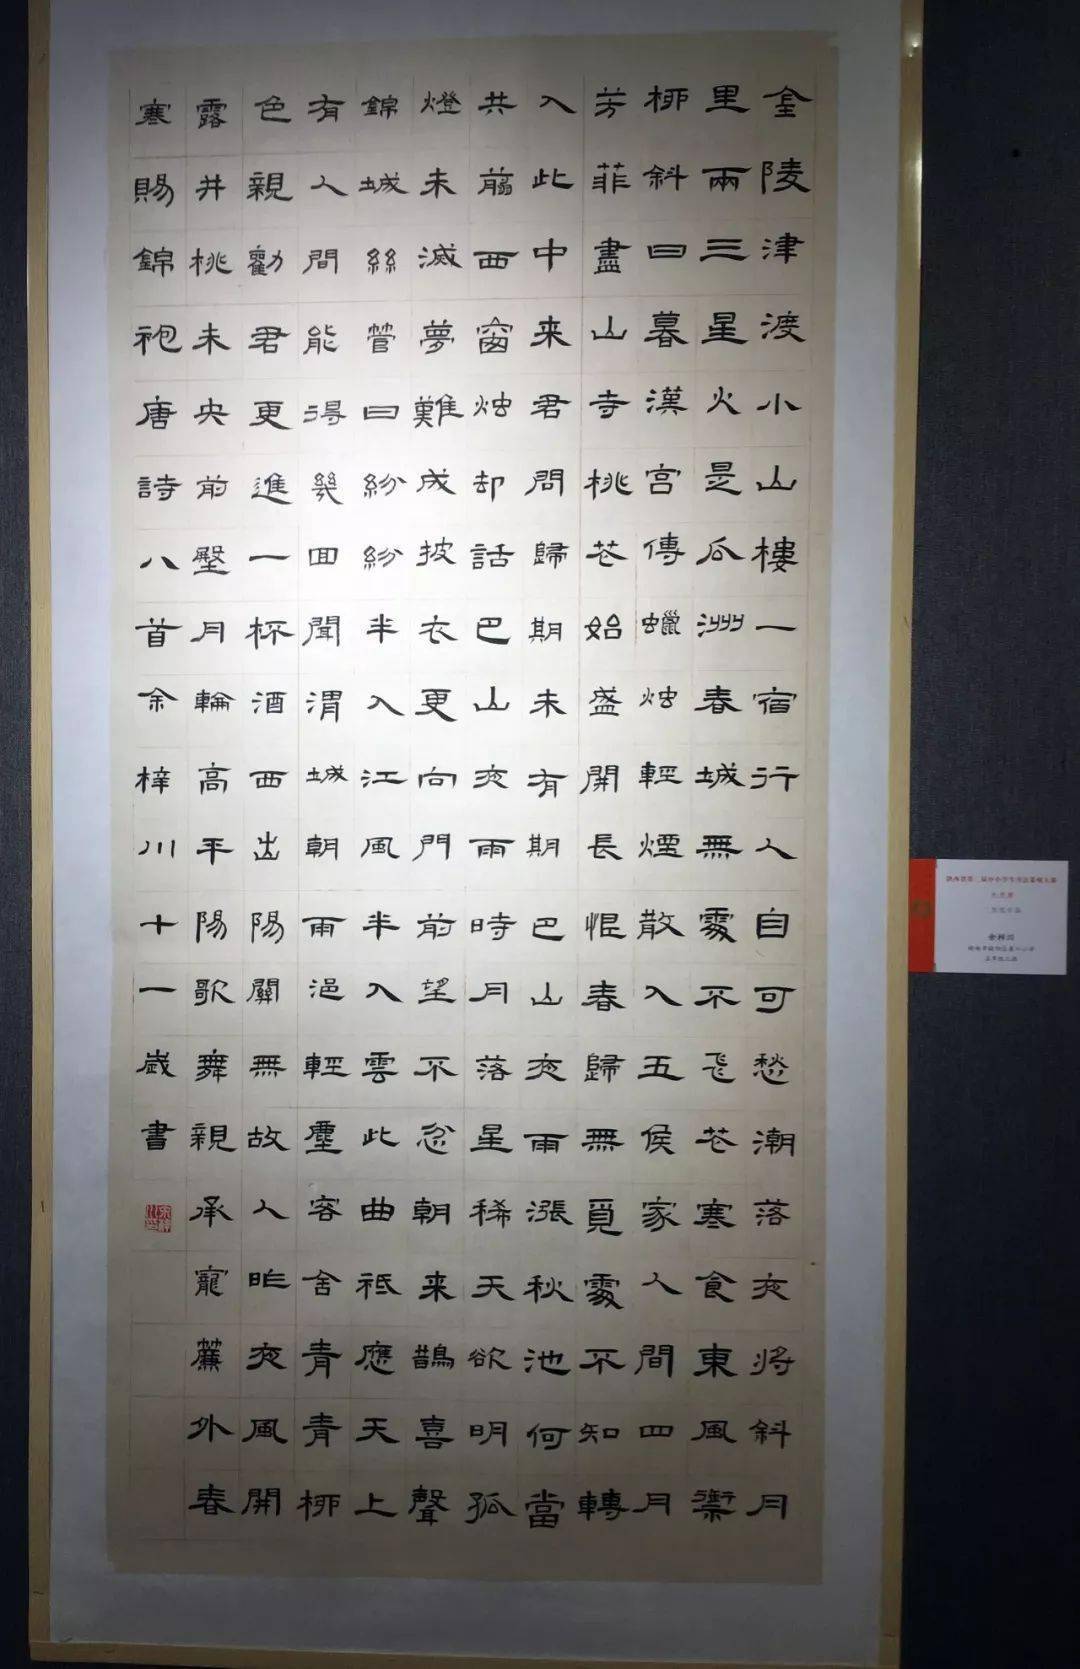 金陵津渡小山樓一宿行人自可愁潮落夜將斜月
里兩三星火是瓜洲春城無處不飛花寒食東風禦
柳斜日暮漢宮傳蠟烛輕煙散入五侯家人間四月
芳菲盡山寺桃花始盛開長恨春歸無覓處不知轉
入此中来君問歸期未有期巴山夜雨漲秋池何當
共剪西窗烛却話巴山夜雨時月落星稀天欲明孤
燈未滅夢難成披衣更向門前望不忿朝来鵲喜聲
錦城絲管日紛紛半入江風半入雲此曲衹應天上
有人間能得幾回聞渭城朝雨浥輕塵客舍青青柳
色親勸君更進一杯酒西出陽關無故人昨夜風開
露井桃未央前殿月輪高平陽歌舞親承寵簾外春
寒賜錦袍唐詩八首余梓川十一歲書
余梓川